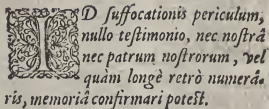 ID ſuffocationis periculum,
nullo teſtimonio, nec noſtrâ
nec patrum noſtrorum, vel
quàm longè retrò numera-
ris, memoriâ confirmari poteſt.